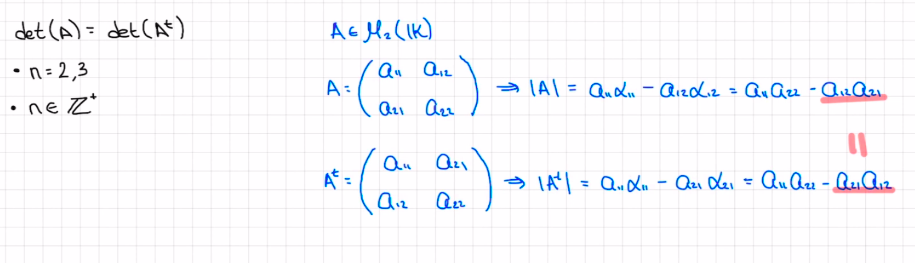 det(A) = det(Aᵗ)
• n=2,3
• n ∈ ℤ⁺
A ∈ M₂(K)
A = (a₁₁ a₁₂
a₂₁ a₂₂) ⇒ |A| = a₁₁α₁₁ - a₁₂α₁₂ = a₁₁a₂₂ - a₁₂a₂₁
=
Aᵗ = (a₁₁ a₂₁
a₁₂ a₂₂) ⇒ |Aᵗ| = a₁₁α₁₁ - a₂₁α₂₁ = a₁₁a₂₂ - a₂₁a₁₂